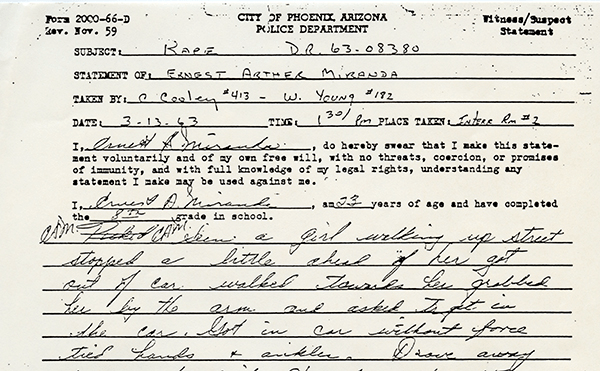 Form 2000-66-D
Rev. Nov. 59
CITY OF PHOENIX, ARIZONA
POLICE DEPARTMENT
Witness/Suspect
Statement
SUBJECT: Rape D.R. 63-08380
STATEMENT OF: Ernest Arther Miranda
TAKEN BY: C Cooley #413 - W. Young #182
DATE: 3-13-63 TIME: 1:30 Pm PLACE TAKEN: Interr Rm #2
I, Ernest A. Miranda, do hereby swear that I make this state-
ment voluntarily and of my own free will, with no threats, coercion, or promises
of immunity, and with full knowledge of my legal rights, understanding any
statement I make may be used against me.
I, Ernest A. Miranda, am 23 years of age and have completed
the 8th grade in school.
EAM EAM Seen a girl walking up street
stopped a little ahead of her got
out of car walked towards her grabbed
her by the arm and asked to get in
the car. Got in car without force
tied hands & ankles. Drove away